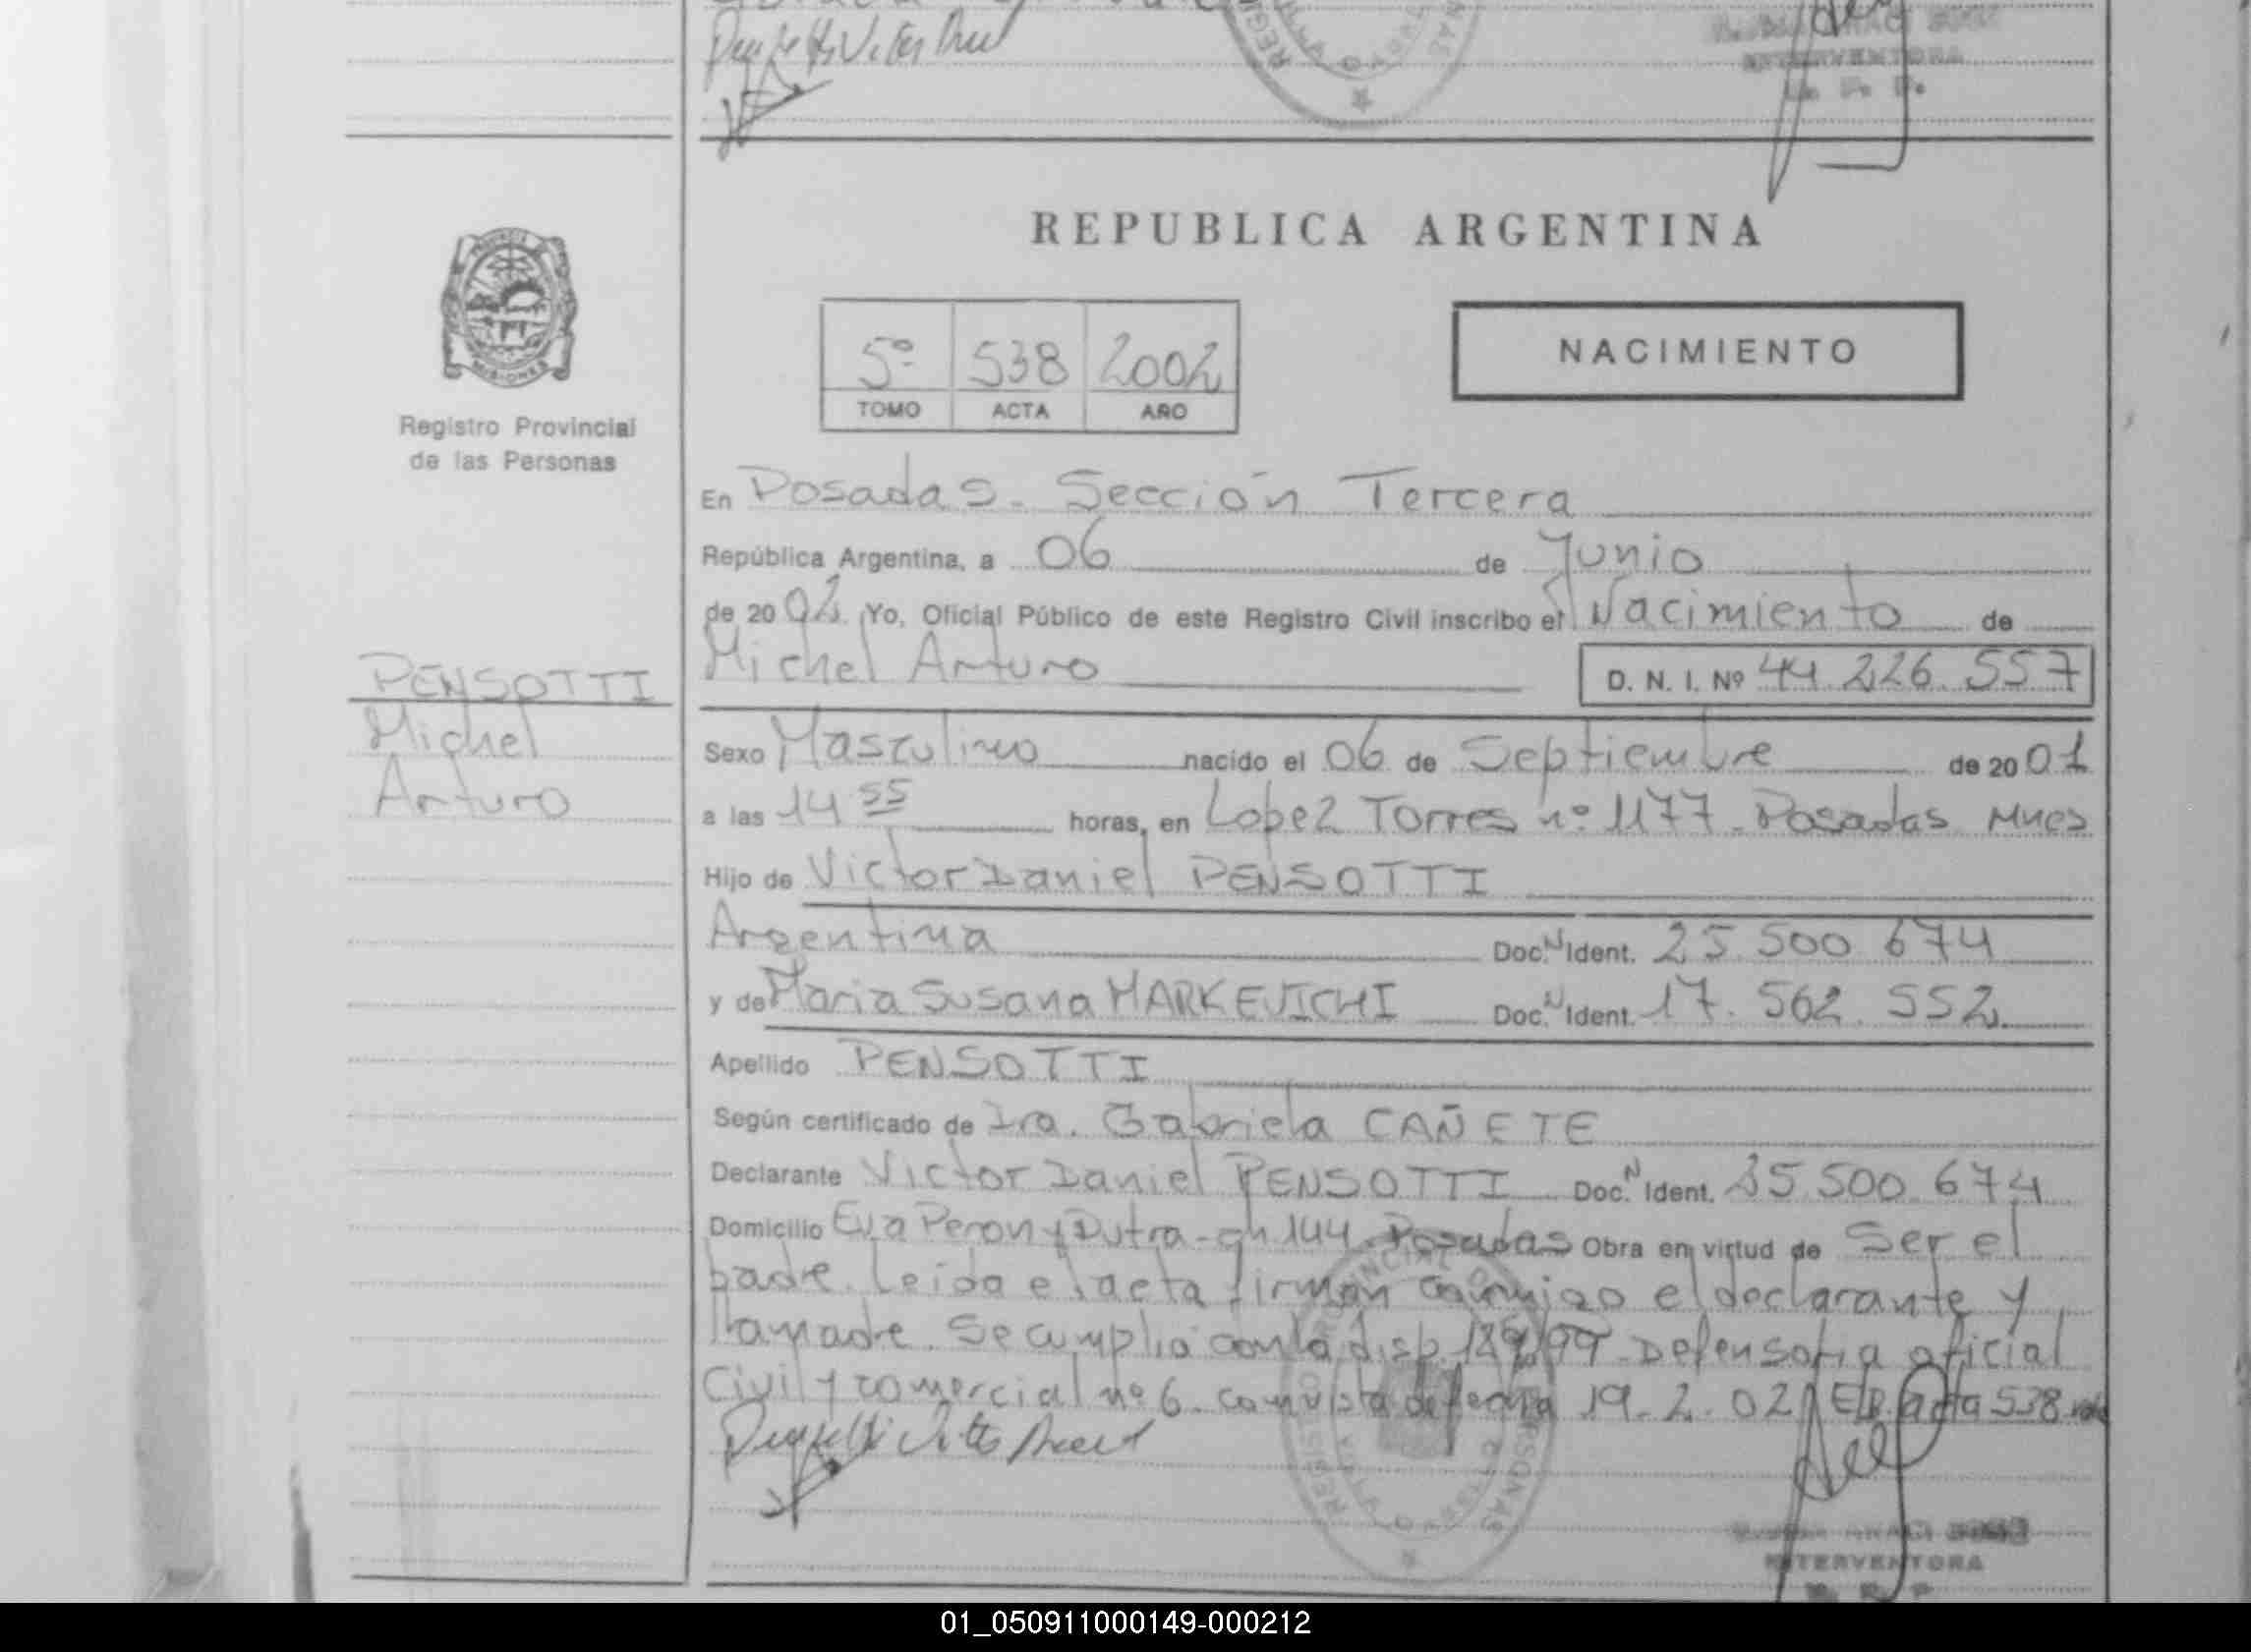 REPUBLICA ARGENTINA
5º 538 2002
TOMO ACTA AÑO
NACIMIENTO
MISIONES
Registro Provincial
de las Personas
PENSOTTI
Michel
Arturo
En Posadas - Sección Tercera
República Argentina, a 06 de Junio
de 2002. Yo, Oficial Público de este Registro Civil inscribo el Nacimiento de
Michel Arturo D. N. I. Nº 44.226.557
Sexo Masculino nacido el 06 de Septiembre de 2001
a las 14 55 horas, en Lopez Torres nº 1177 - Posadas Mnes
Hijo de Victor Daniel PENSOTTI
Argentina Doc. N Ident. 25.500.674
y de Maria Susana MARKEVICHI Doc. N Ident. 17.562.552
Apellido PENSOTTI
Según certificado de Dra. Gabriela CAÑETE
Declarante Victor Daniel PENSOTTI Doc. N Ident. 25.500.674
Domicilio Eva Peron y Dutra - ch 144 Posadas Obra en virtud de Ser el
padre. Leida el acta firman conmigo el declarante y
la madre. Se cumplió con la disp. 129/99 - Defensoria oficial
Civil y comercial nº 6. con vista de fecha 19.2.02 acta 538
INTERVENTORA
01_050911000149-000212